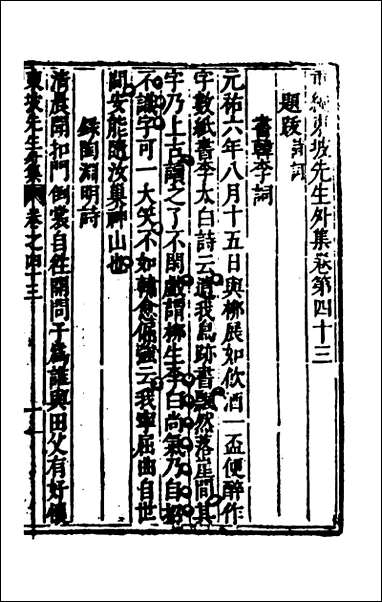 重編東坡先生外集卷第四十三
題跋詩詞
書韓李詞
元祐六年八月十五日與柳展如飲酒一盃便醉作
字數紙書李太白詩云遺我鳥跡書飄然落岩間其
字乃上古讀之了不閑戲謂柳生李白尚氣乃自招
不識字可一大笑不如韓愈倔強云我寧屈曲自世
間安能隨汝巢神山也
錄陶淵明詩
清晨聞扣門倒裳自往開問子為誰與田父有好懷
東坡先生外集卷之四十三